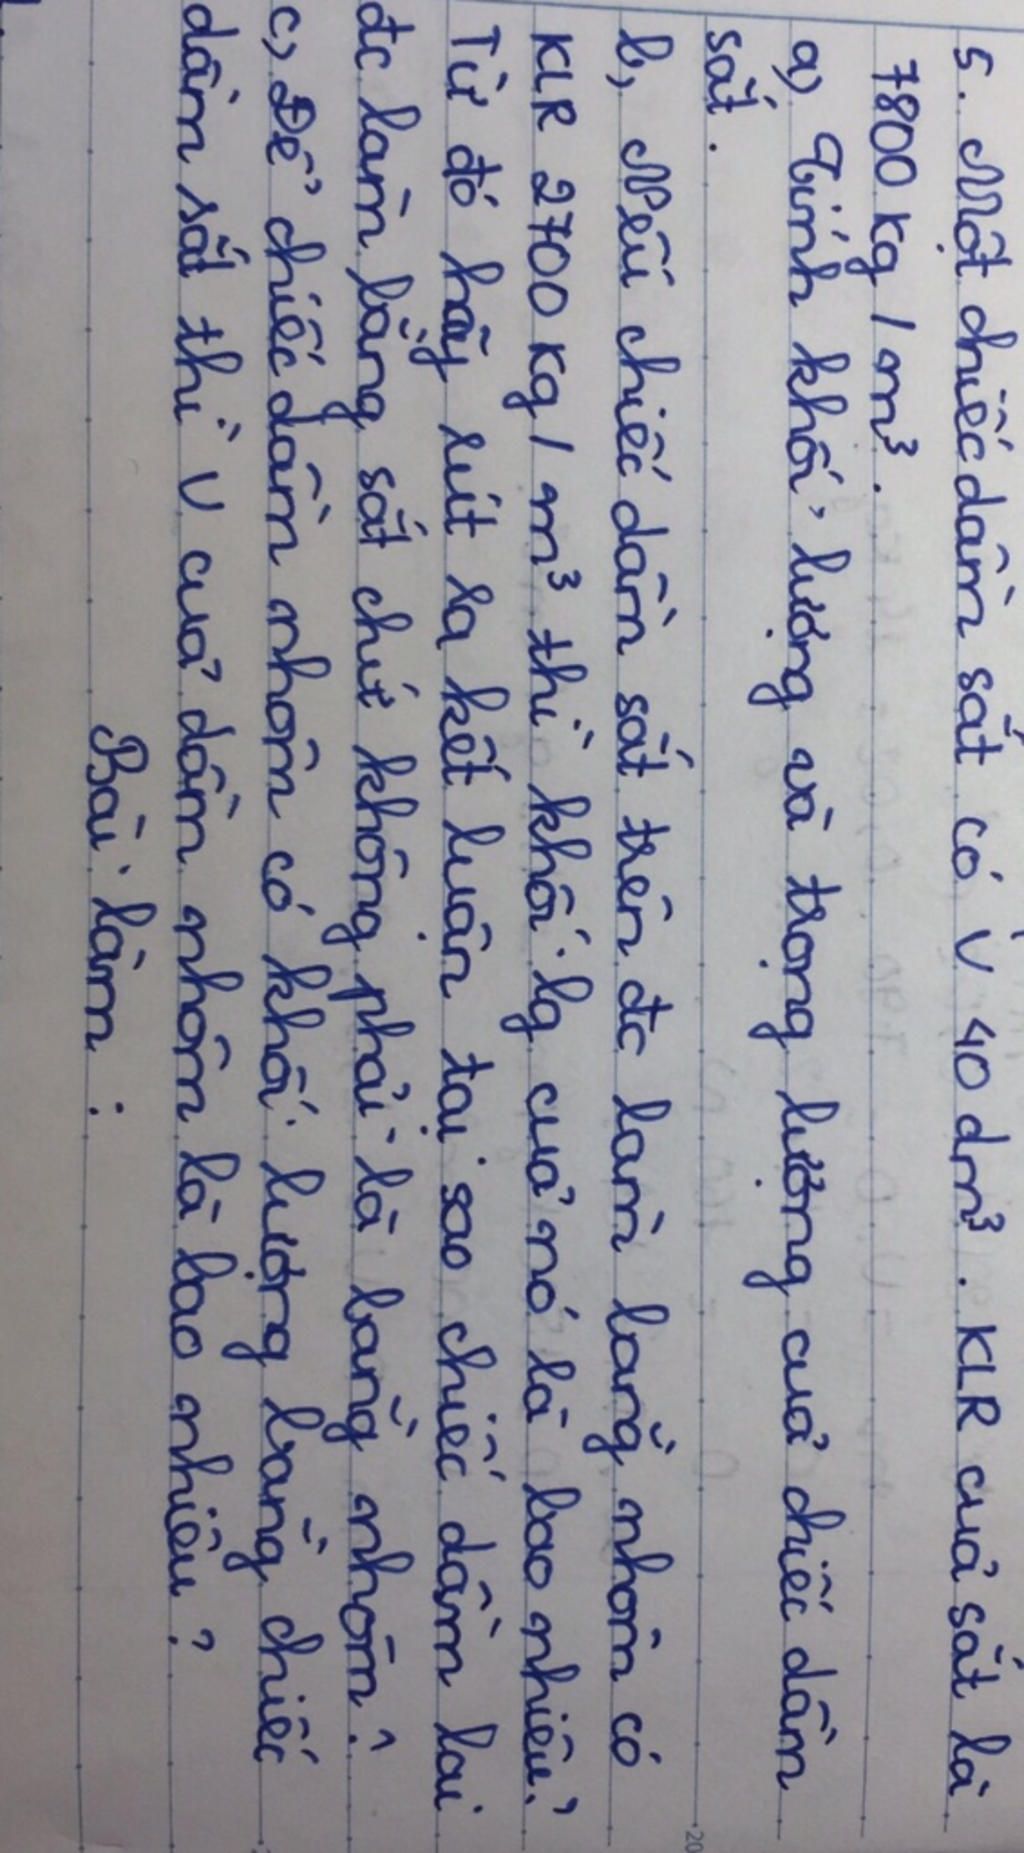 5. Một chiếc dầm sắt có V 40 dm³. KLR của sắt là
7800 kg / m³.
a) Tính khối lượng và trọng lượng của chiếc dầm
sắt.
b, Nếu chiếc dầm sắt trên đc làm bằng nhôm có
KLR 2700 kg / m³ thì khối lg của nó là bao nhiêu?
Từ đó hãy rút ra kết luận tại sao chiếc dầm lại
đc làm bằng sắt chứ không phải là bằng nhôm?
c, Để chiếc dầm nhôm có khối lượng bằng chiếc
dầm sắt thì V của dầm nhôm là bao nhiêu?
Bài làm :
20